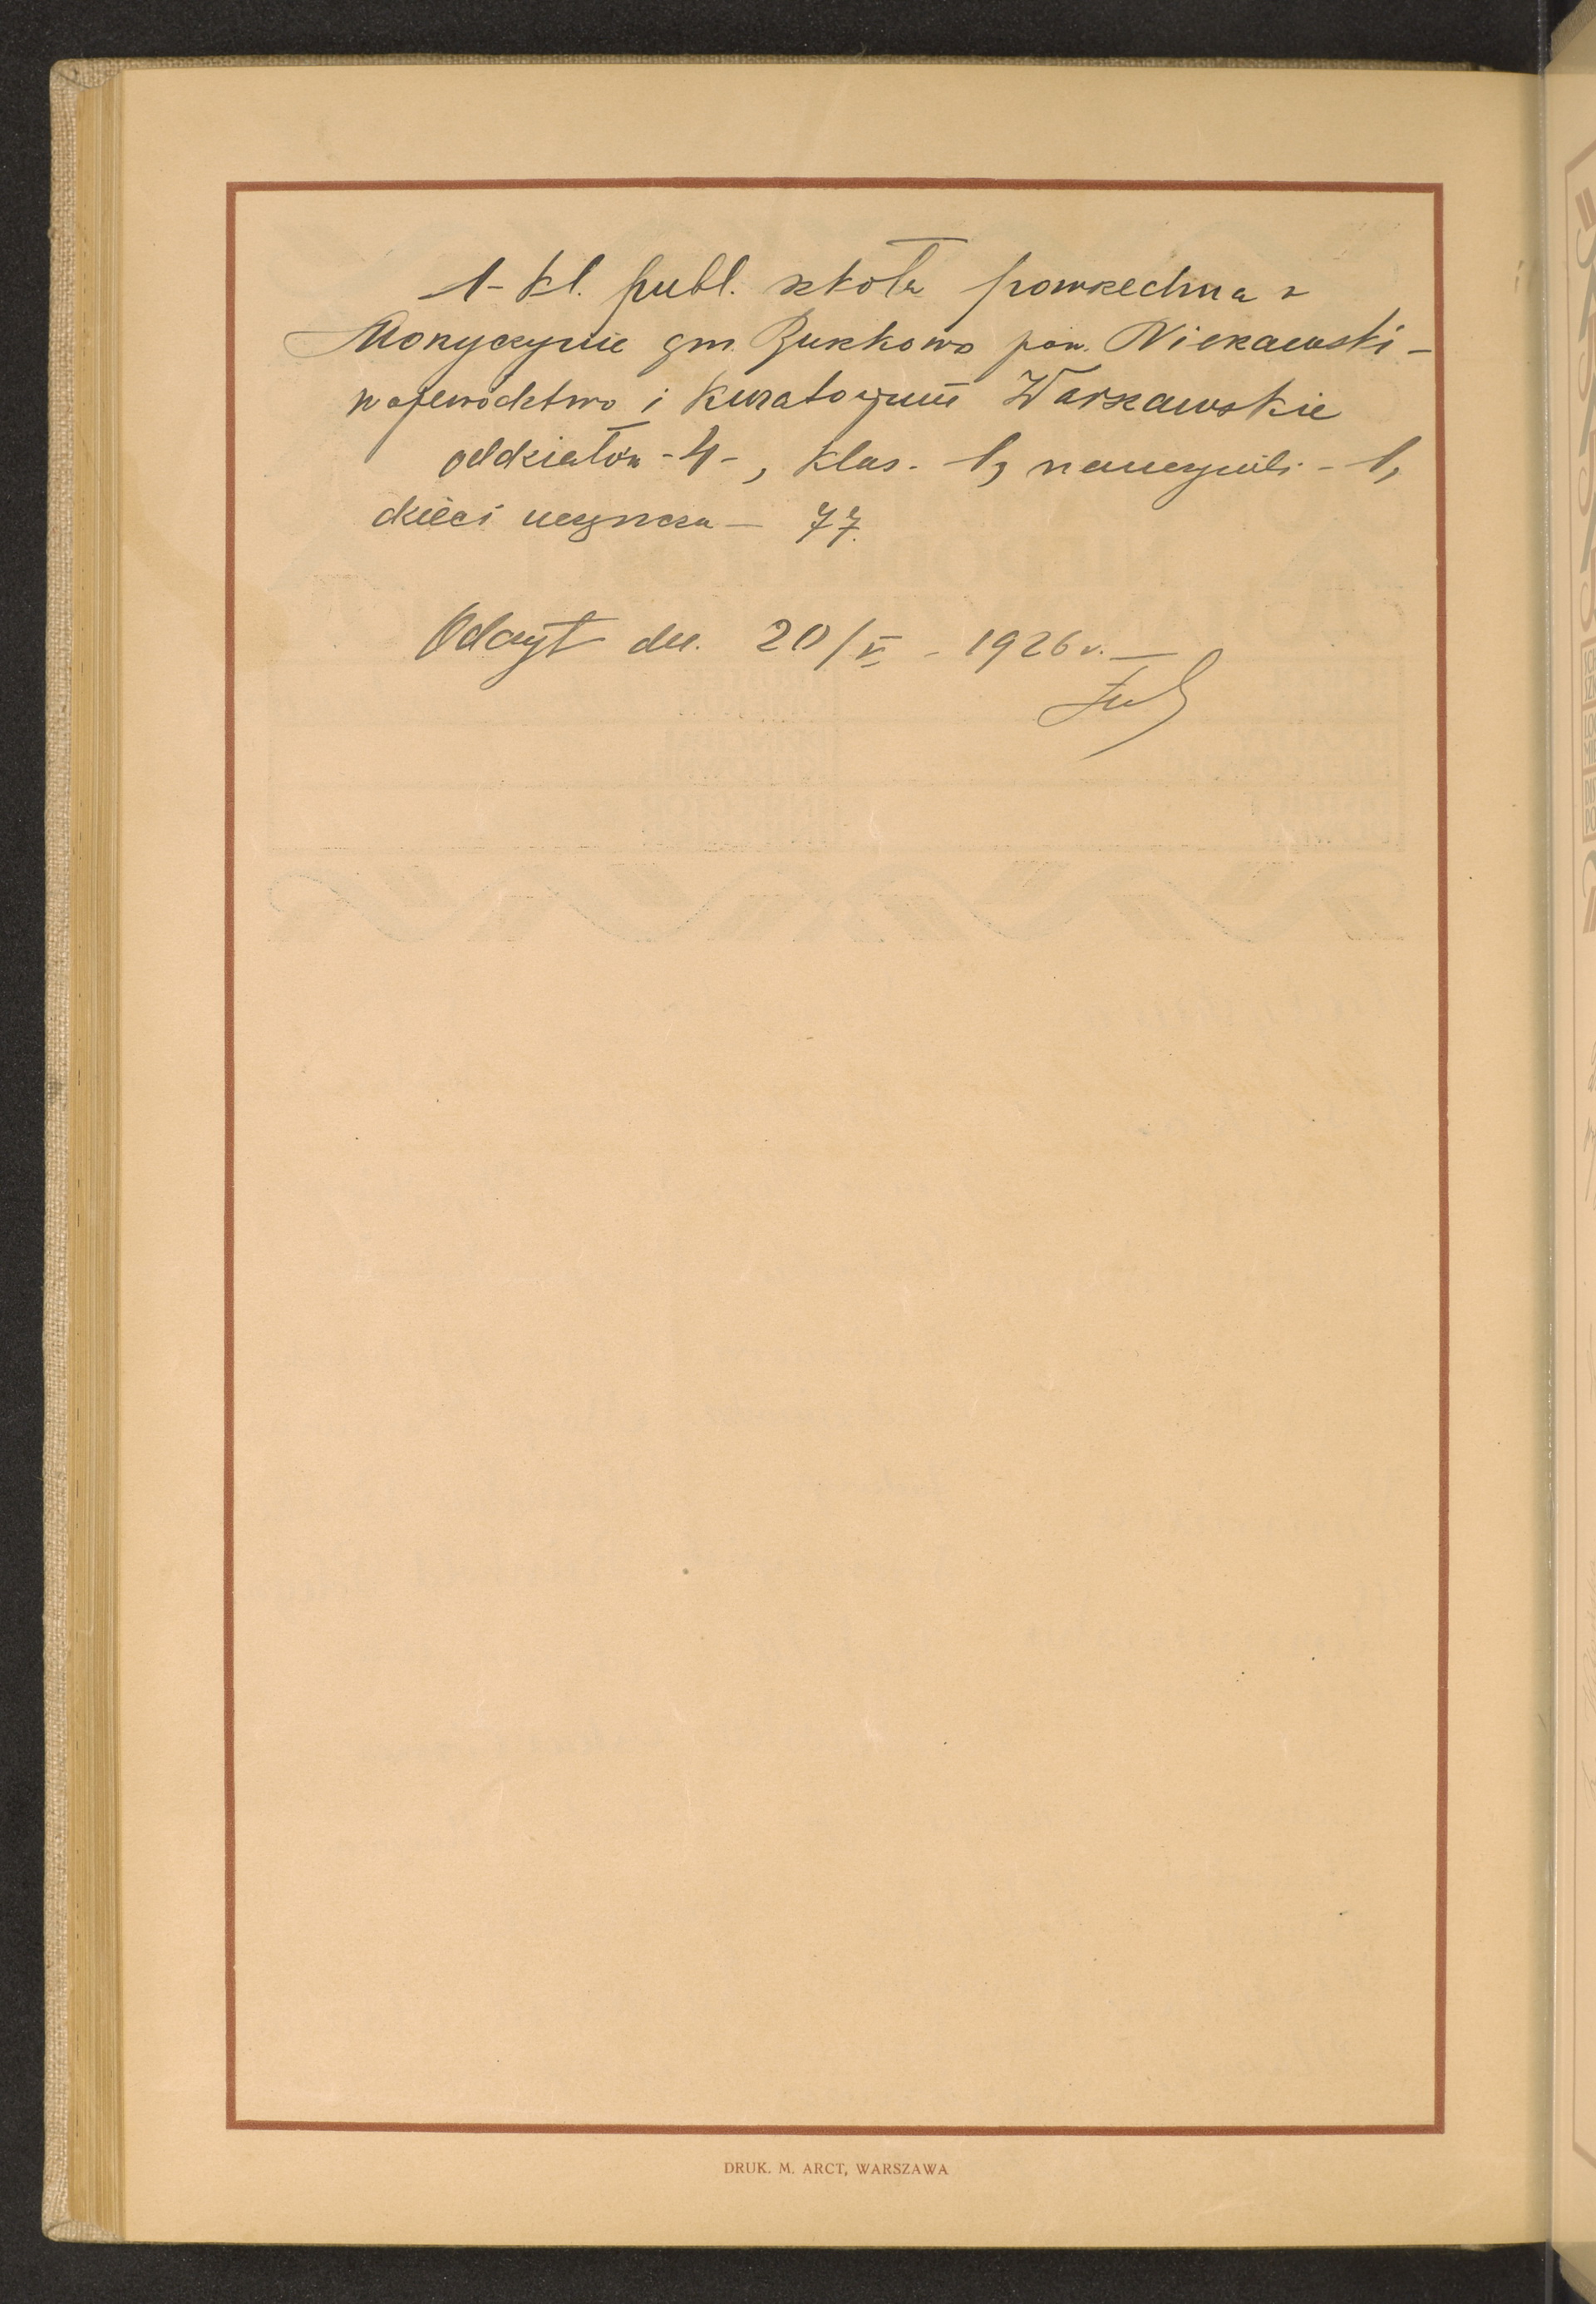 1-kl. publ. szkoła powszechna w
Morzyczynie gm. Ruszkowo pow. Nieszawski -
województwo i Kuratorjum Warszawskie
oddziałów - 4 - , klas - 1, nauczycieli - 1,
dzieci uczęszcza — 77.
Odczyt dn. 20/V - 1926 r. —
DRUK. M. ARCT, WARSZAWA